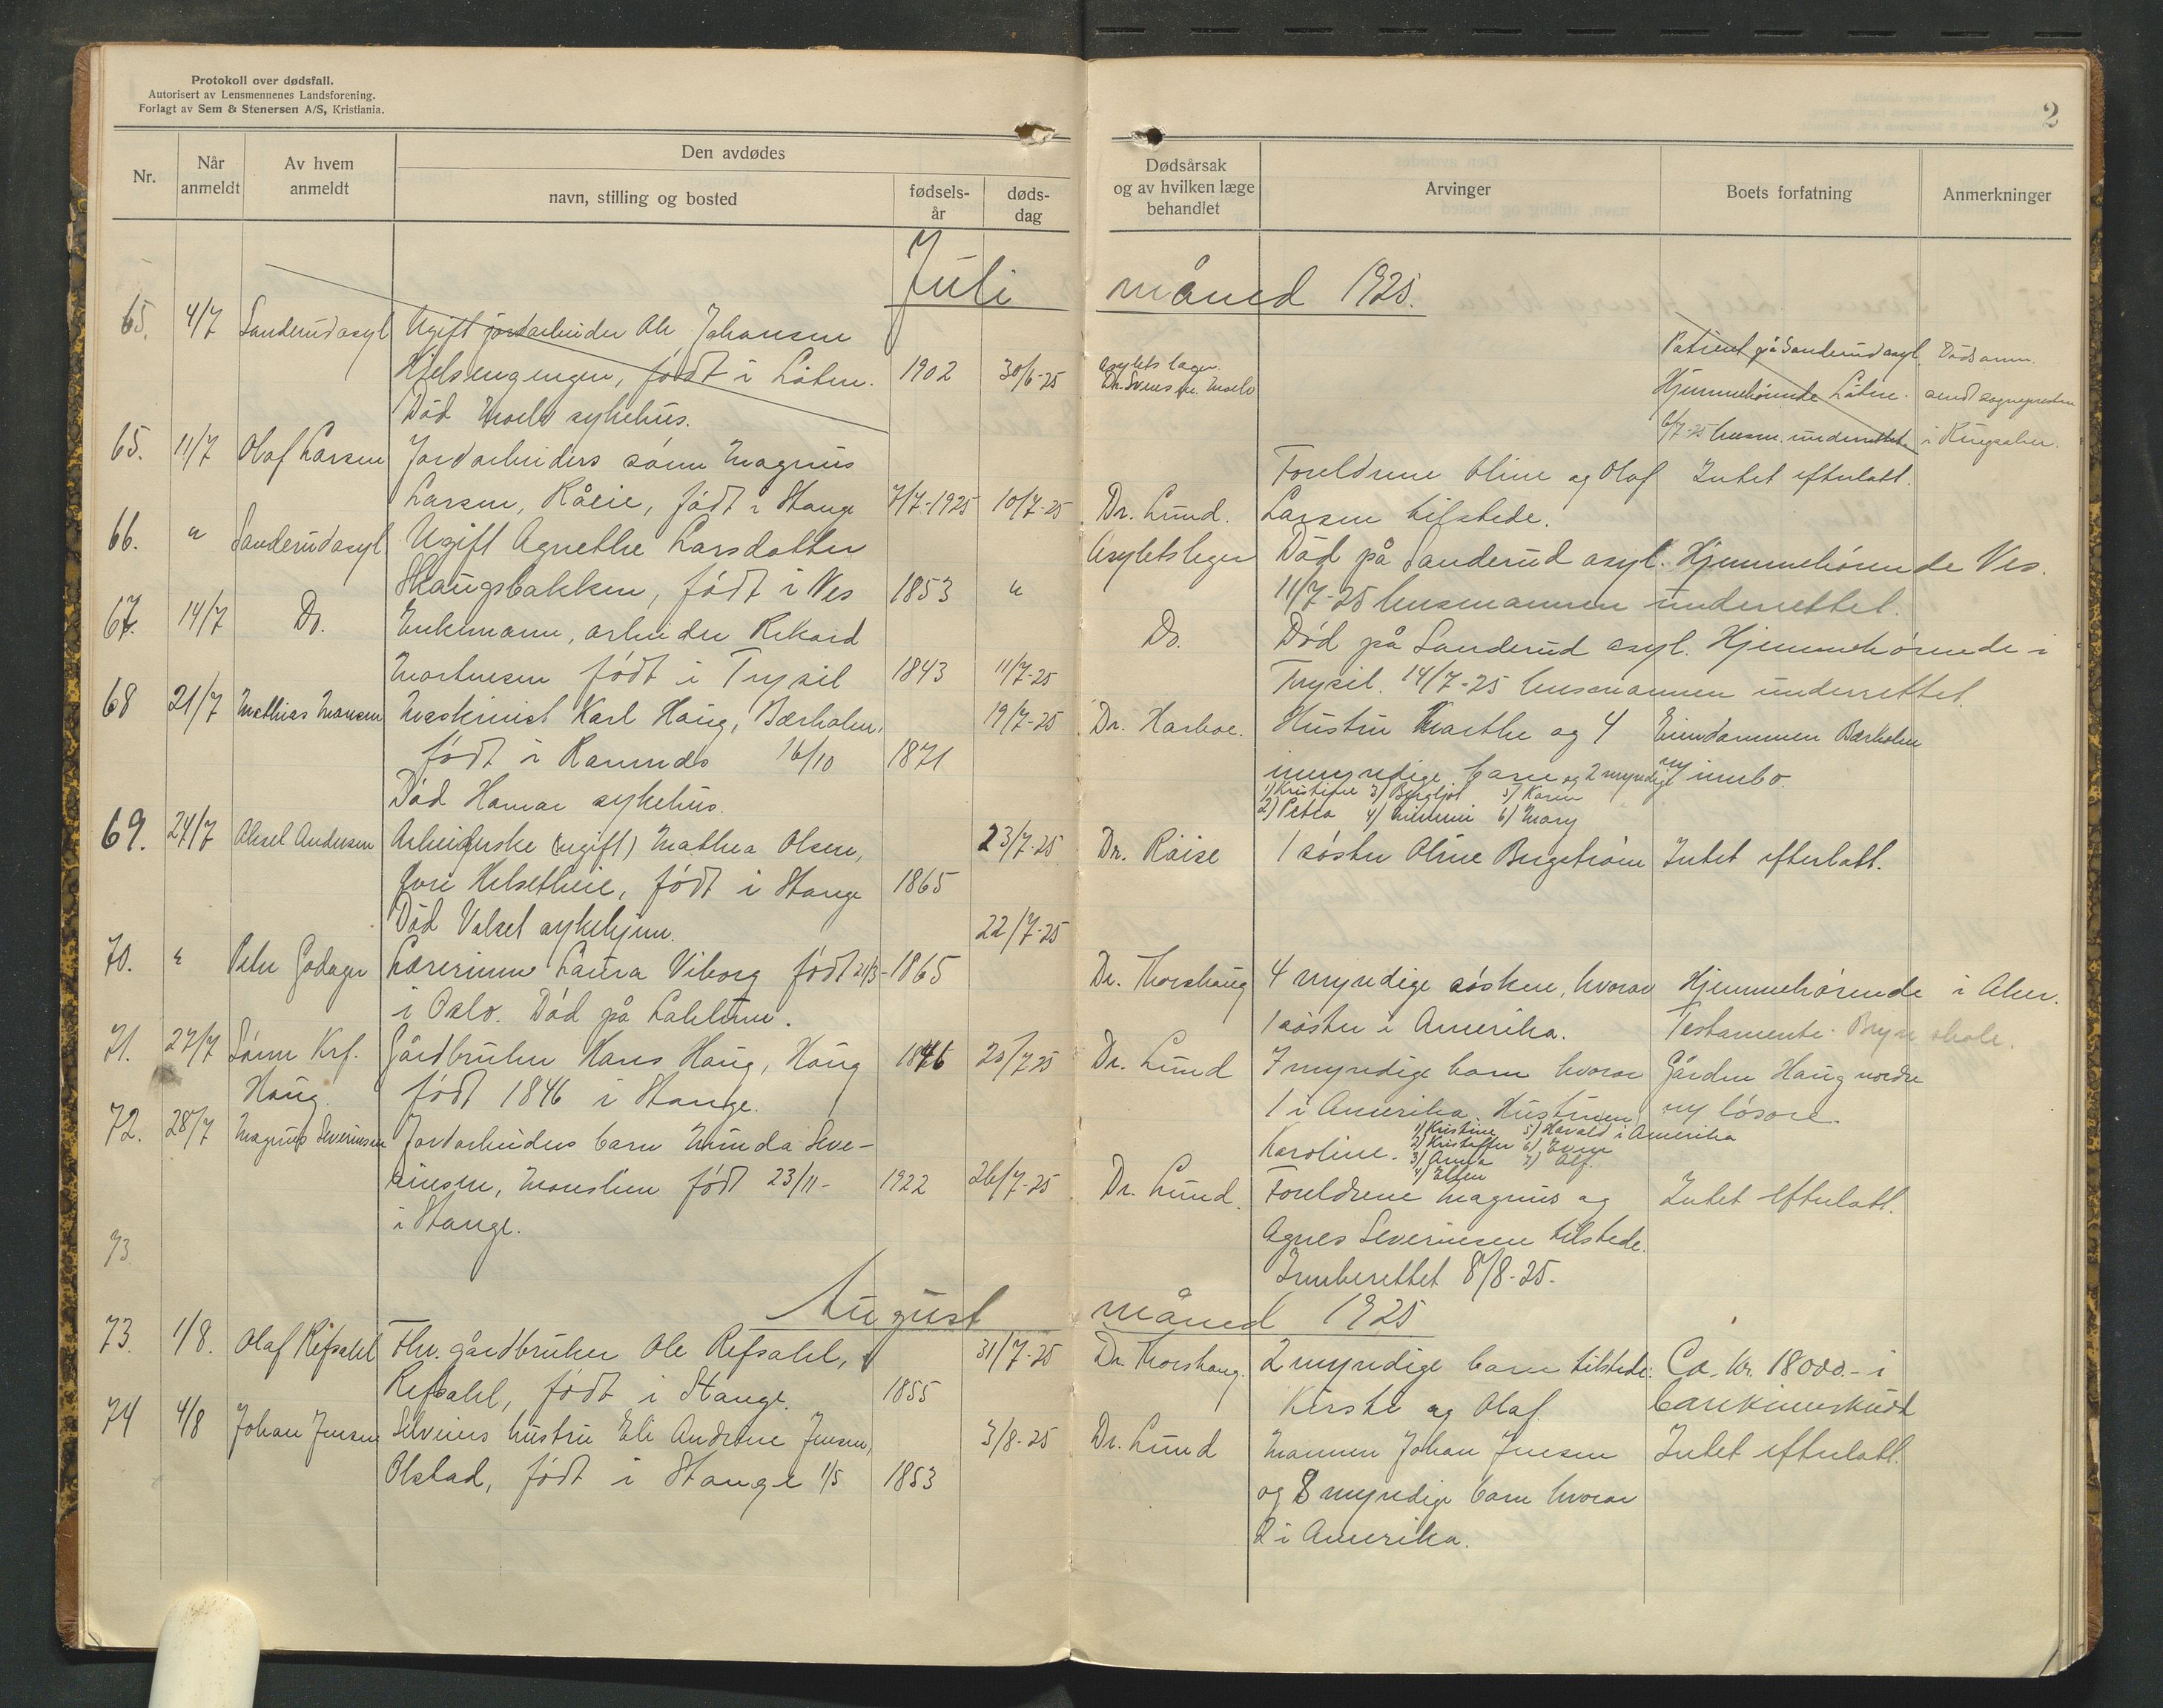 Protokoll over dødsfall.
Autorisert av Lensmennenes Landsforening.
Forlagt av Sem & Stenersen A/S, Kristiania.
2
Nr.
Når anmeldt
Av hvem anmeldt
Den avdødes
navn, stilling og bosted
fødsels-år
døds-dag
Dødsårsak og av hvilken læge behandlet
Arvinger
Boets forfatning
Anmerkninger
Juli måned 1925.
65. 4/7 Sanderud asyl Ugift jordarbeider Ole Johansen
Patient på Sanderud asyl. Dødsanm.
født i Løten. 1902 30/6-25 Asylets læger. Dr.
Hjemmehørende Løten. sendt sognepresten
Død Moelv sykehus.
6/7-25 lensm. underrettet i Ringsaker.
65. 11/7 Olaf Larsen Jordarbeiders sønn Magnus
Foreldrene Oline og Olaf Intet efterlatt.
Larsen, Råeie, født i Stange 7/7-1925 10/7-25 Dr. Lund. Larsen tilstede.
66. " Sanderud asyl Ugift Agnethe Larsdatter
Asylets leger Død på Sanderud asyl. Hjemmehørende Nes.
Skaugsbakken, født i Nes 1853 "
11/7-25 lensmannen underrettet.
67. 14/7 Do. Enkemann, arbeider Rikard
Do. Død på Sanderud asyl. Hjemmehørende i
Martinsen født i Trysil 1843 11/7-25
Trysil. 14/7-25 lensmannen underrettet.
68 21/7 Mathias Monsen Maskinist Karl Haug, Bærholen, 19/7-25 Dr. Harboe. Hustru Marthe og 4 Eiendommen Bærholen
født i Romedal 16/10 1871
umyndige barn og 2 myndige og innbo.
Død Hamar sykehus.
1) Kristine 3) Bergljot 5) Karin
2) Petra 4) 6) Mary
69. 24/7 Aksel Andersen Arbeiderske (ugift) Mathea Olsen, 23/7-25 Dr. Roise 1 søster Oline Bergstrøm Intet efterlatt.
Øvre Helsetheie, født i Stange 1865
Død Valset sykehjem. 22/7-25
70. " Peter Godager Lærerinne Laura Viborg født 21/3-1865
Dr. Thorshaug 4 myndige søsken, hvorav Hjemmehørende i Aker.
i Oslo. Død på
1 søster i Amerika. Testamente. Bryn skole.
71. 27/7 Sønn Krf. Haug. Gårdbruker Hans Haug, Haug 1846 25/7 25 Dr. Lund 7 myndige barn hvorav Gården Haug nordre
født 1846 i Stange.
1 i Amerika. Hustruen og løsøre.
Karoline.
1) Kristine 5) Harald i Amerika
2) Kristoffer 6) Even
3) Anna 7) Alf.
4) Ellen
72. 28/7 Magnus Severinsen Jordarbeiders barn Minda Seve-
rinsen, Monslien født 23/11- 1922 26/7-25 Dr. Lund. Foreldrene Magnus og Intet efterlatt.
i Stange.
Agnes Severinsen tilstede.
73
Innberettet 8/8-25.
August måned 1925
73. 1/8. Olaf Refsahl Fhv. gårdbruker Ole Refsahl, 31/7-25 Dr. Thorshaug. 2 myndige barn tilstede: Ca. kr. 18000.- i
Refsahl, født i Stange. 1855
Kirsti og Olaf. bankinnskudd
74 4/8 Johan Jensen Selveiers hustru Eli Andrine Jensen, 3/8-25 Dr. Lund Mannen Johan Jensen Intet efterlatt.
Olstad, født i Stange 1/5 1853
og 8 myndige barn hvorav
2 i Amerika.